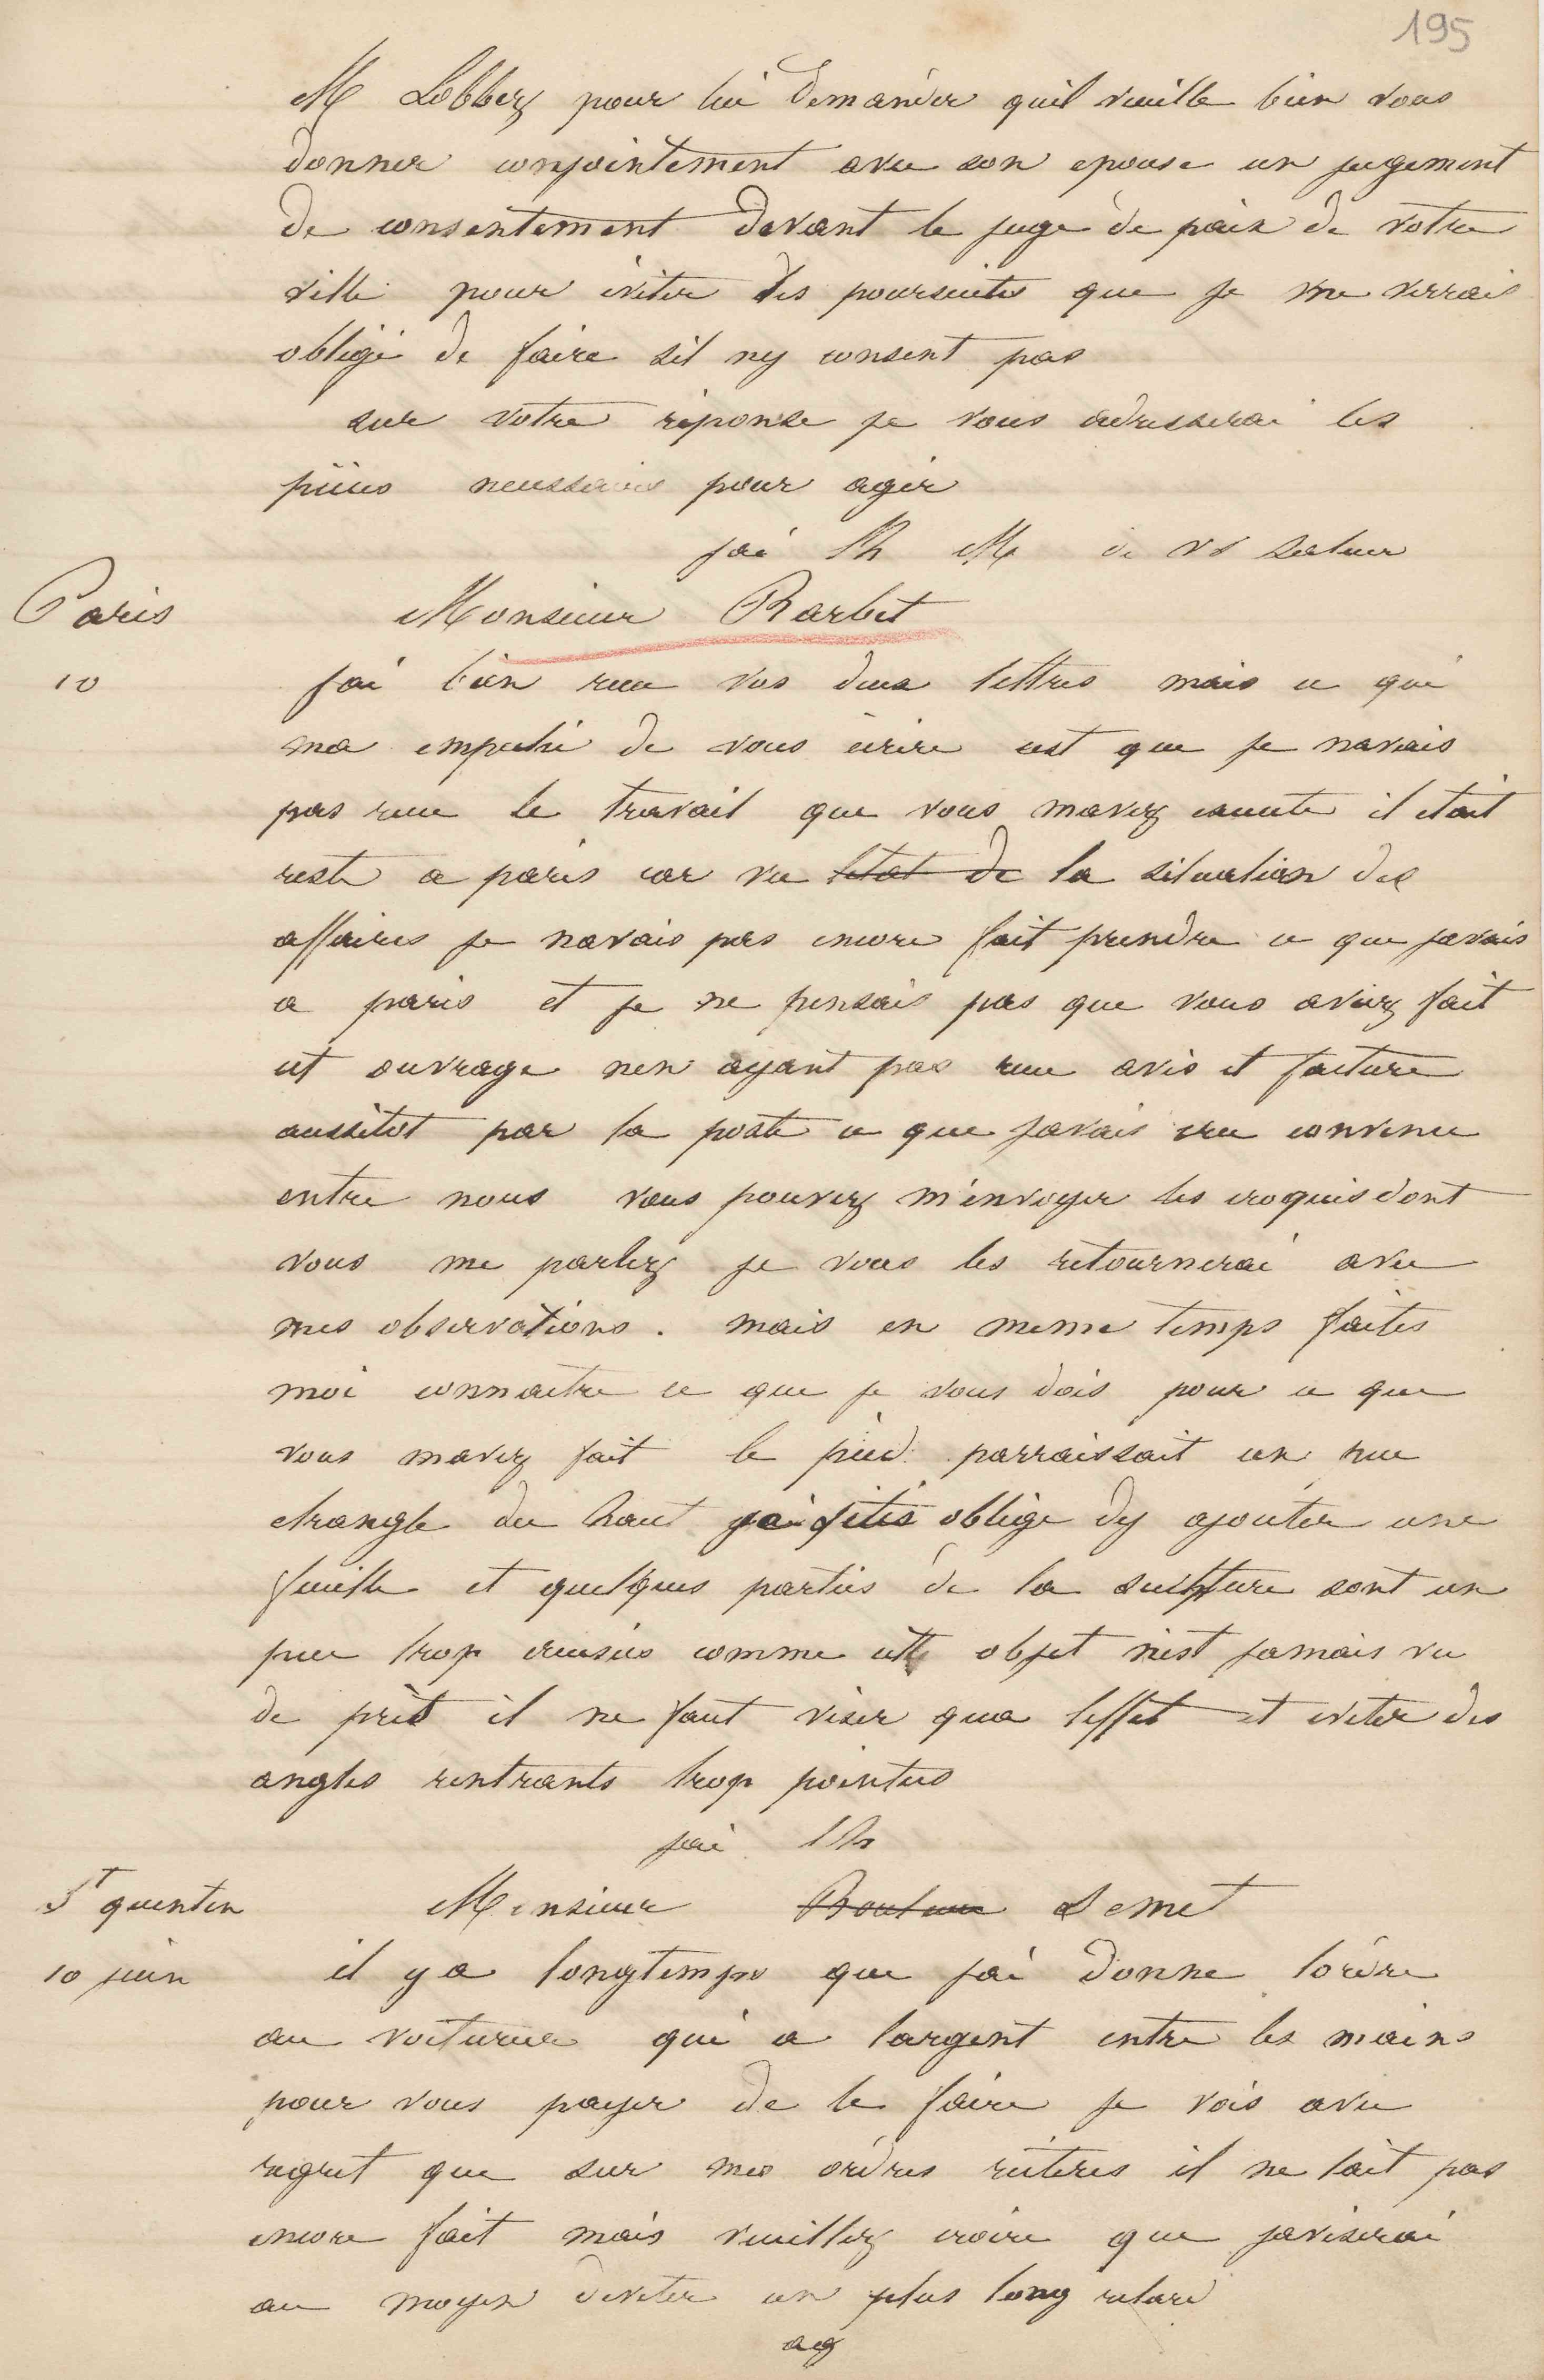 195
M Lobbez pour lui demander quil veuille bien vous
donner conjointement avec son epouse un jugement
de consentement devant le juge de paix de votre
ville pour éviter des poursuites que je me verrais
obligé de faire sil ny consent pas
sur votre réponse je vous adresserai les
pièces necessaires pour agir
jai lh M de vs saluer
Paris Monsieur Barbet
10 jai bien recu vos deux lettres mais ce qui
ma empeché de vous écrire cest que je navais
pas recu le travail que vous mavez execute il etait
reste a paris car vu letat de la situation des
affaires je navais pas encore fait prendre ce que javais
a paris et je ne pensais pas que vous aviez fait
cet ouvrage nen ayant pas recu avis et facture
aussitot par la poste ce que javais cru convenu
entre nous vous pouvez m'envoyer les croquis dont
vous me parlez je vous les retournerai avec
mes observations . mais en meme temps faites
moi connaitre ce que je vous dois pour ce que
vous mavez fait le pied parraissait un peu
etrangle du haut jai été oblige dy ajouter une
feuille et quelques parties de la sculpture sont un
peu trop creusées comme cette objet nest jamais vu
de prèt il ne faut viser qua leffet et eviter des
angles rentrants trop pointus
jai lh
St quentin Monsieur Demet
10 juin il y a longtemps que jai donne lordre
au voiturier qui a largent entre les mains
pour vous payer de le faire je vois avec
regret que sur mes ordres réiteres il ne lait pas
encore fait mais veuillez croire que javiserai
au moyen deviter un plus long retard
ag